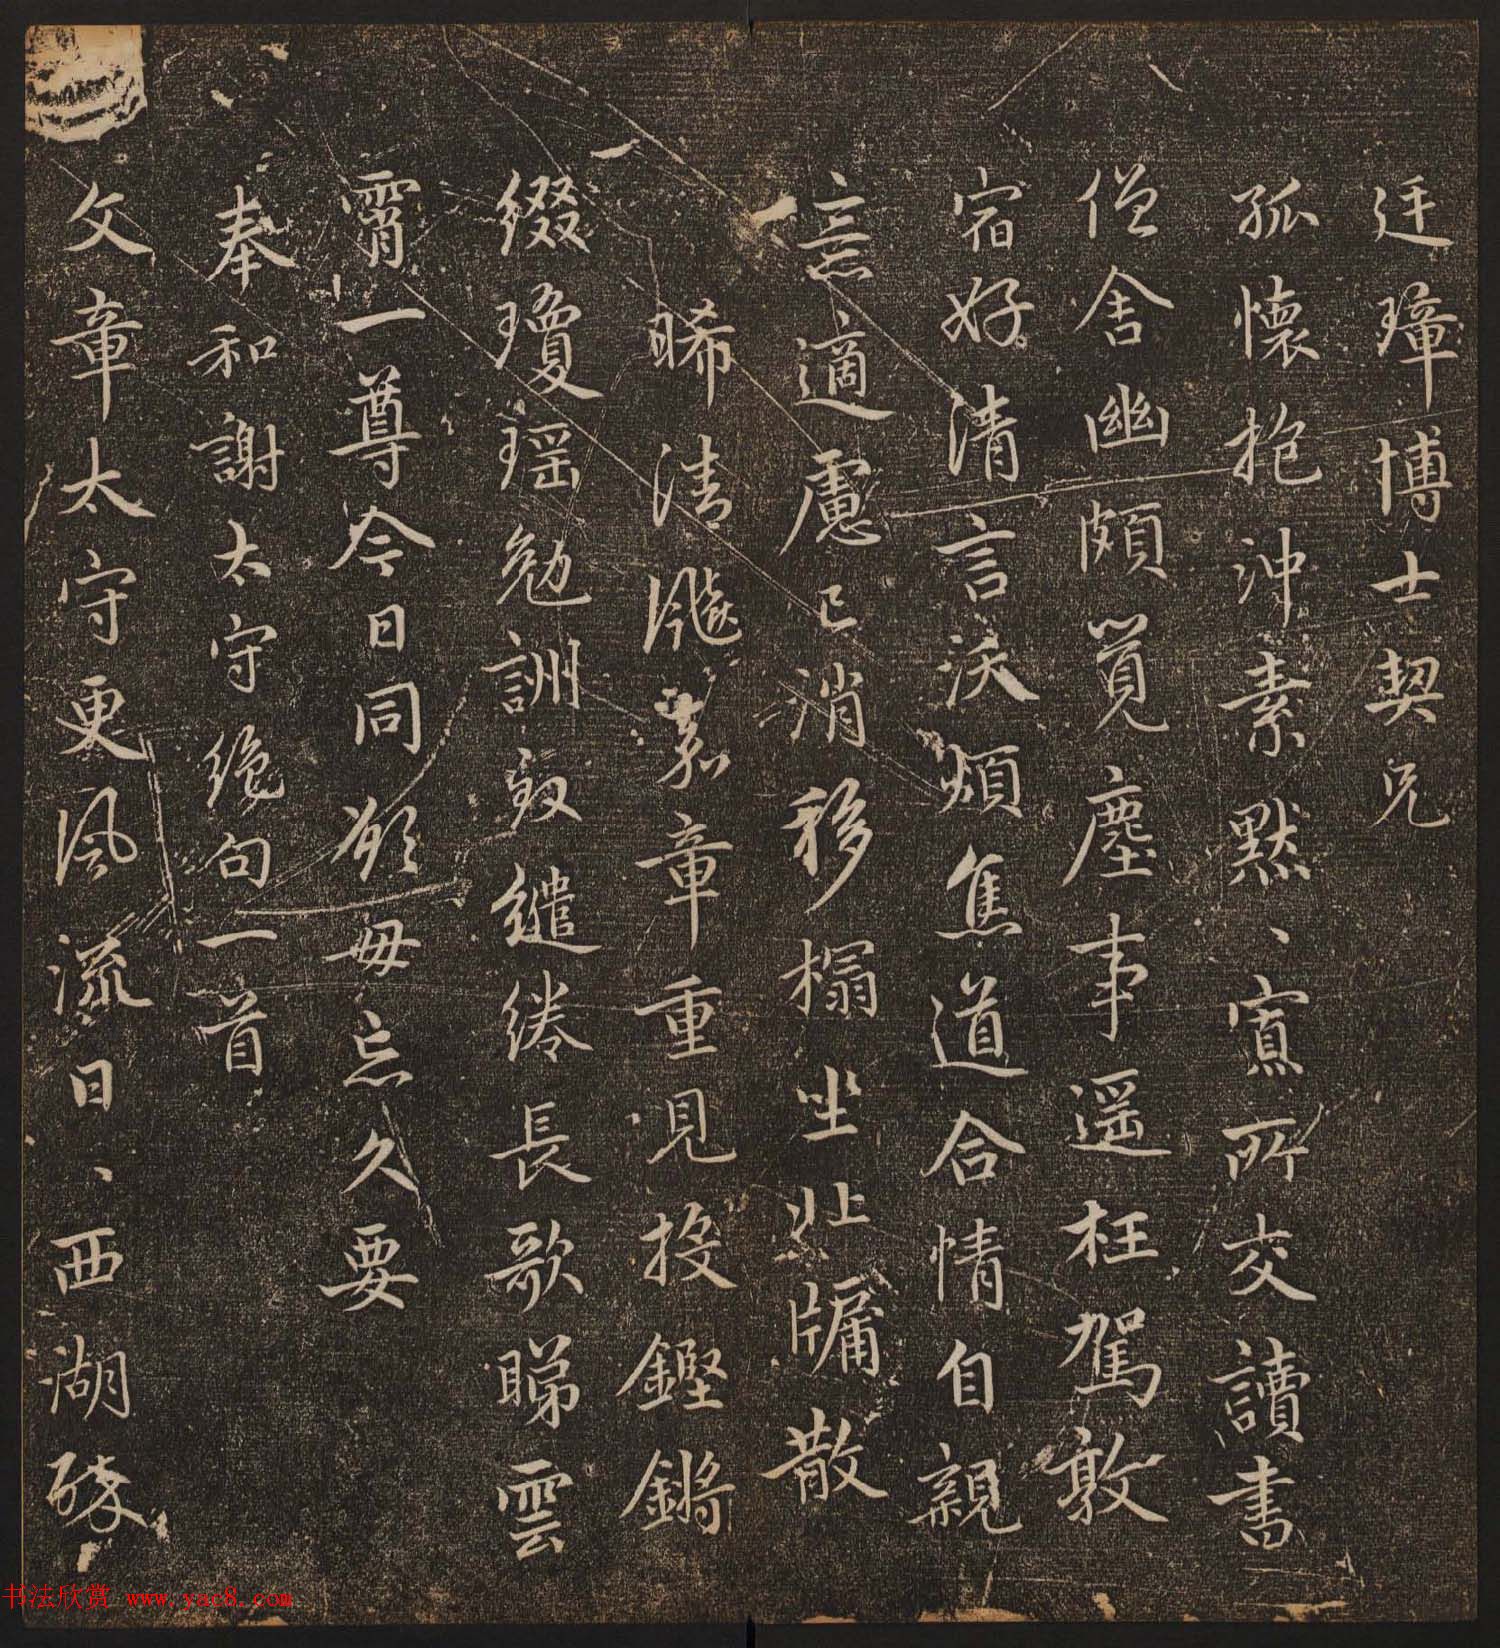 廷璋博士契兄
孤懷抱沖素默、寡所交讀書
僧舍幽頗覓塵事遥枉駕敦
宿好清言沃煩焦道合情自親
意適慮已消移榻坐牕散
晞清飈嘉章重見投鏗鏘
綴瓊瑶勉詶致繾綣長歌睇雲
霄一尊今日同願毋忘久要
奉和謝太守絶句一首
文章太守更風流日、西湖
书法欣赏 www.yac8.com